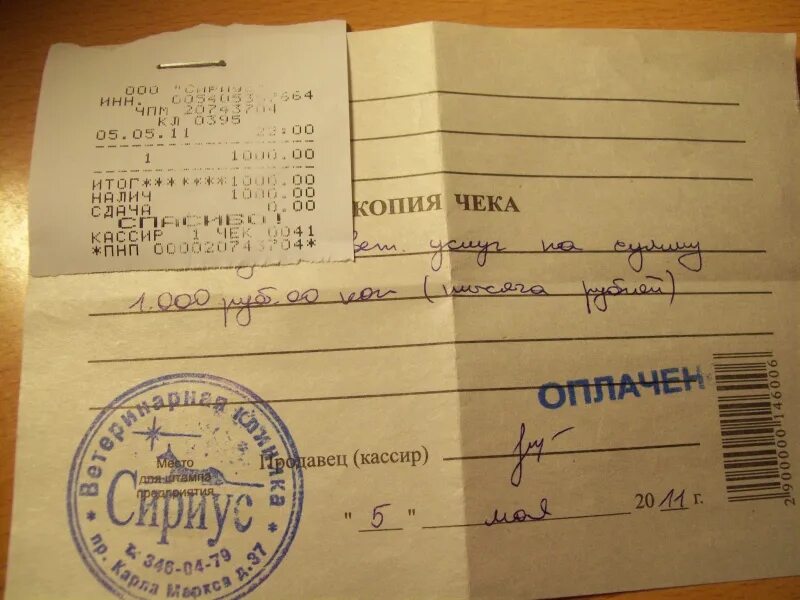 ООО "Сириус"
ИНН. 00540
ЧПМ 20743704
КЛ 0395
05.05.11 22:00
1 1000.00
ИТОГ*******1000.00
НАЛИЧ 1000.00
СДАЧА 0.00
СПАСИБО!
КАССИР 1 ЧЕК 0041
*ПНП 000020743704*
КОПИЯ ЧЕКА
вет. услуг на сумму
1.000 руб.00 коп (тысяча рублей)
ОПЛАЧЕН
Продавец (кассир)
" 5 " мая 2011 г.
Ветеринарная клиника
Место
для штампа
предприятия
Сириус
т. 346-04-79
пр. Карла Маркса д.37
2900000146006